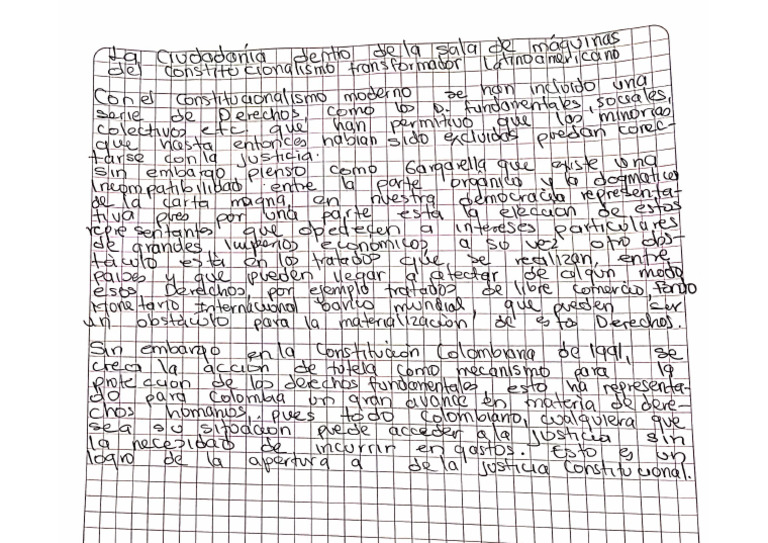 La Ciudadanía dentro de la sala de máquinas
del constitucionalismo transformador Latinoamericano
Con el constitucionalismo moderno se han incluido una
serie de Derechos, como los D. fundamentales, sociales,
colectivos etc, que han permitivo que las minorias
que hasta entonces habian sido excluidas puedan conec-
tarse con la justicia.
Sin embargo pienso como Gargarella que existe una
Incompatibilidad entre la parte organica y la dogmatica
de la carta magna, en nuestra democracia representa-
tiva pues por una parte esta la eleccion de estos
representantes que obedecen a intereses particulares
de grandes imperios economicos a su vez otro obs-
táculo esta en los tratados que se realizan, entre
paises y que pueden llegar a afectar de algun modo
estos Derechos, por ejemplo tratados de libre comercio, fondo
monetario Internacional banco mundial, que pueden ser
un obstaculo para la materialización de esto Derechos.
Sin embargo en la Constitución Colombiana de 1991, se
crea la acción de tutela como mecanismo para la
protección de los derechos fundamentales esto ha representa-
do para Colombia un gran avance en materia de dere-
chos humanos, pues todo colombiano, cualquiera que
sea su situación puede acceder a la justicia sin
la necesidad de incurrir en gastos. Esto es un
logro de la apertura a de la justicia Constitucional.